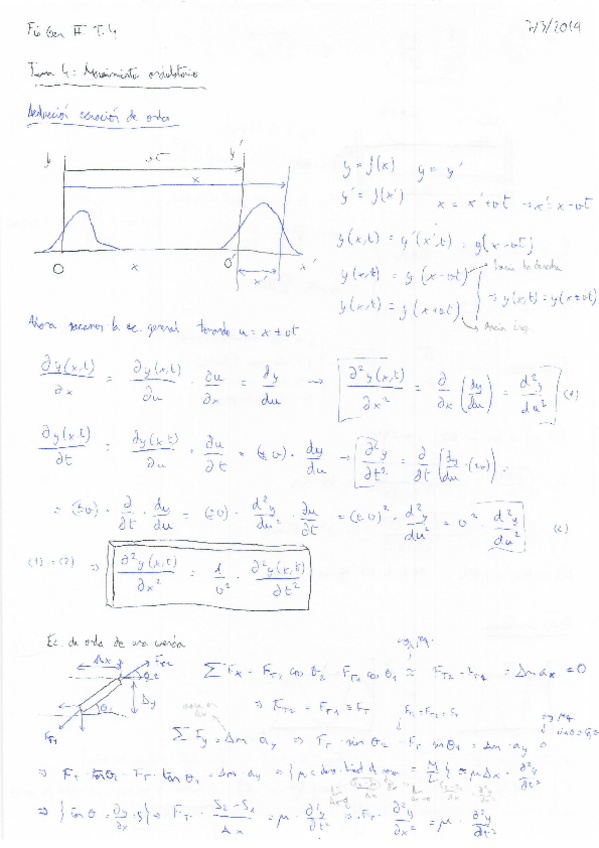 Fis Gen II T.4
7/3/2019
Tema 4: Movimiento ondulatorio
Deducción ecuación de onda
y vt y'
x
O x O' x' x'
y = f(x) y = y'
y' = f(x') x = x' + vt → x' = x - vt
y(x,t) = y'(x',t) = y(x-vt)
y(x,t) = y(x-vt) hacia la derecha
⇒ y(x,t) = y(x±vt)
y(x,t) = y(x+vt) hacia izq.
Ahora sacamos la ec. general tomando u = x ± vt
∂y(x,t)/∂x = ∂y(x,t)/∂u · ∂u/∂x = dy/du → ∂²y(x,t)/∂x² = ∂/∂x (dy/du) = d²y/du² (1)
∂y(x,t)/∂t = ∂y(x,t)/∂u · ∂u/∂t = (±v) · dy/du → ∂²y/∂t² = ∂/∂t (dy/du · (±v)) =
= (±v) · ∂/∂t · dy/du = (±v) · d²y/du² · ∂u/∂t = (±v)² · d²y/du² = v² · d²y/du² (2)
(1) = (2) ⇒ ∂²y(x,t)/∂x² = 1/v² · ∂²y(x,t)/∂t²
Ec. de onda de una cuerda
Δx F_T2 θ2 Δy θ1 F_T1
Σ F_x = F_T2 cos θ2 - F_T1 cos θ1 ≈ F_T2 - F_T1 = Δm a_x = 0
⇒ F_T2 = F_T1 = F_T
F_T1 = F_T2 = F_T
Σ F_y = Δm a_y ⇒ F_T · sin θ2 - F_T sin θ1 = Δm · a_y
⇒ F_T · tan θ2 - F_T · tan θ1 = Δm a_y = μΔx · ∂²y/∂t²
⇒ {tan θ = ∂y/∂x = S} ⇒ F_T · (S2 - S1)/Δx = μ · ∂²y/∂t² ⇒ F_T · ∂²y/∂x² = μ · ∂²y/∂t²